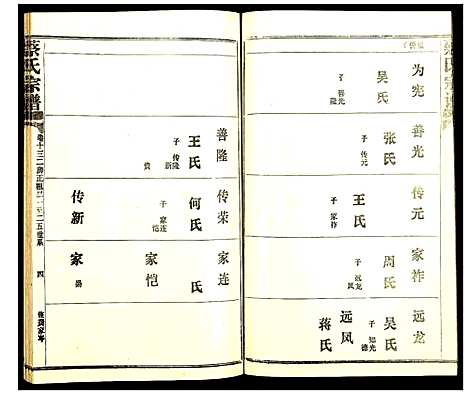 为宪
吴氏
子 善光
隆
善光
张氏
子 传元
传元
王氏
子 家祚
家祚
周氏
子 远龙
风
远龙
吴氏
子
光
德
远风
蒋氏
蔡氏宗谱
卷十三二房正祖
二五世系
四
善隆
王氏
子 传隆
新
贵
传荣
何氏
子 家连
家恺
传新
家连
氏
家恺
家